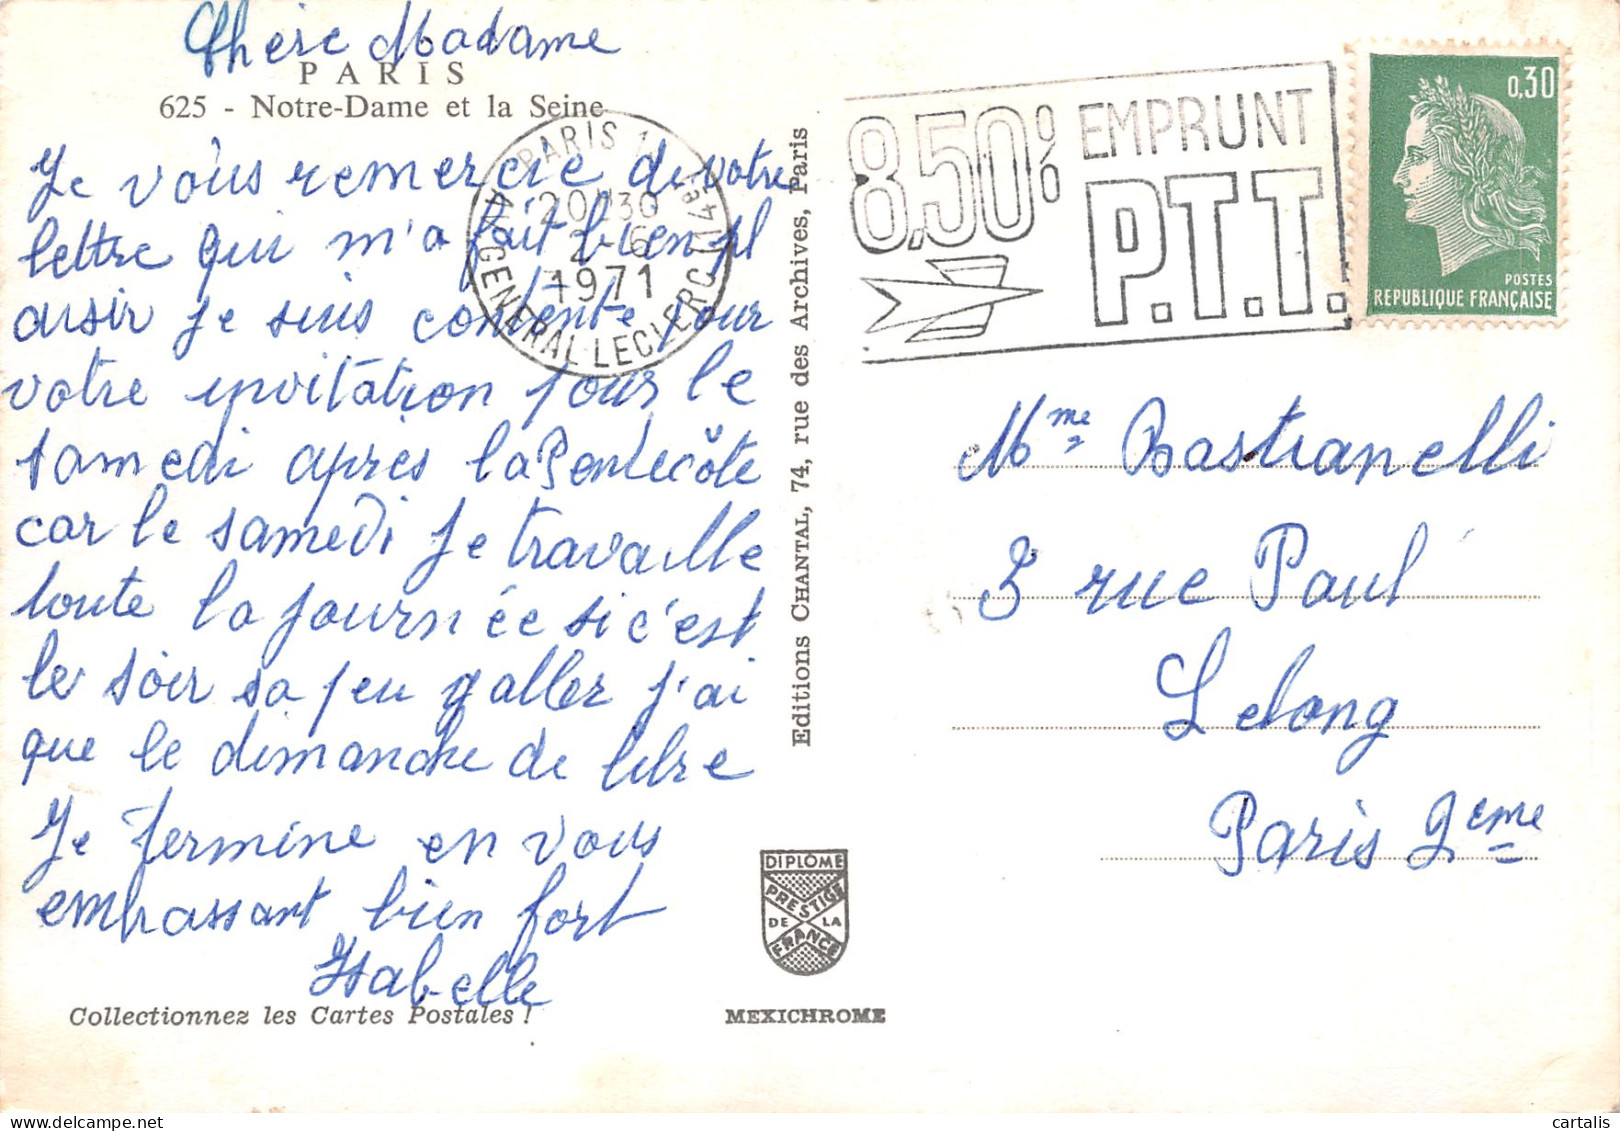 Chère Madame
PARIS
625 - Notre-Dame et la Seine
Je vous remercie de votre
lettre qui m'a fait bien pl
aisir je suis contente pour
votre invitation pour le
samedi après la Pentecôte
car le samedi je travaille
toute la journée si c'est
le soir sa peu y aller j'ai
que le dimanche de libre
Je termine en vous
embrassant bien fort
Isabelle
Collectionnez les Cartes Postales !
Editions CHANTAL, 74, rue des Archives, Paris
DIPLÔME
PRESTIGE
DE LA
FRANCE
MEXICHROME
PARIS
20H30
2-6
1971
AV. GENERAL LECLERC (14e)
8,50% EMPRUNT
P.T.T.
0,30
POSTES
REPUBLIQUE FRANÇAISE
Mme Rastranelli
3 rue Paul
Lelong
Paris 2eme
cartalis